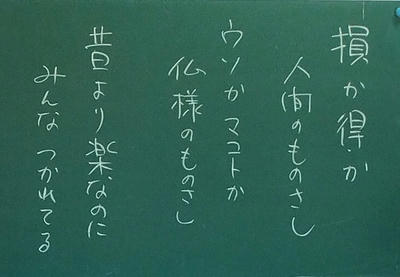 損か得か
人間のものさし
ウソかマコトか
仏様のものさし
昔より楽なのに
みんなつかれてる